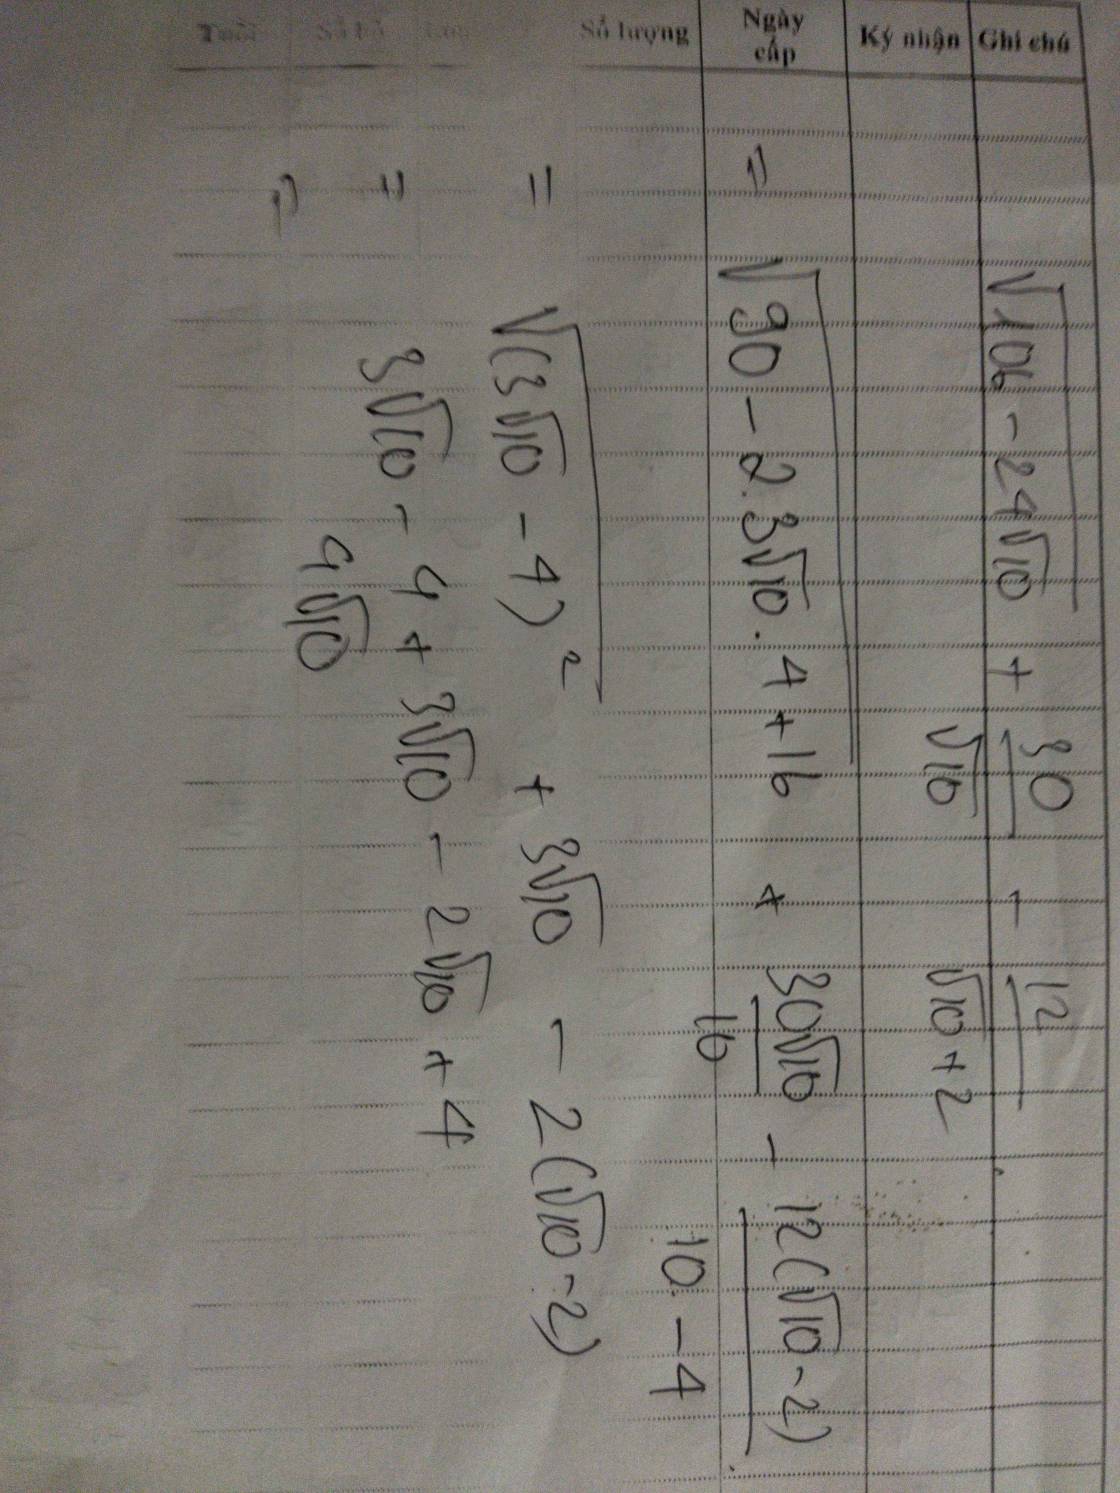 Tuổi Số bộ Số lượng Ngày cấp Ký nhận Ghi chú
√(106 - 24√10) + 30/√10 - 12/(√10 + 2)
= √(90 - 2.3√10.4 + 16) + 30√10/10 - 12(√10 - 2)/(10 - 4)
= √((3√10 - 4)²) + 3√10 - 2(√10 - 2)
= 3√10 - 4 + 3√10 - 2√10 + 4
= 4√10